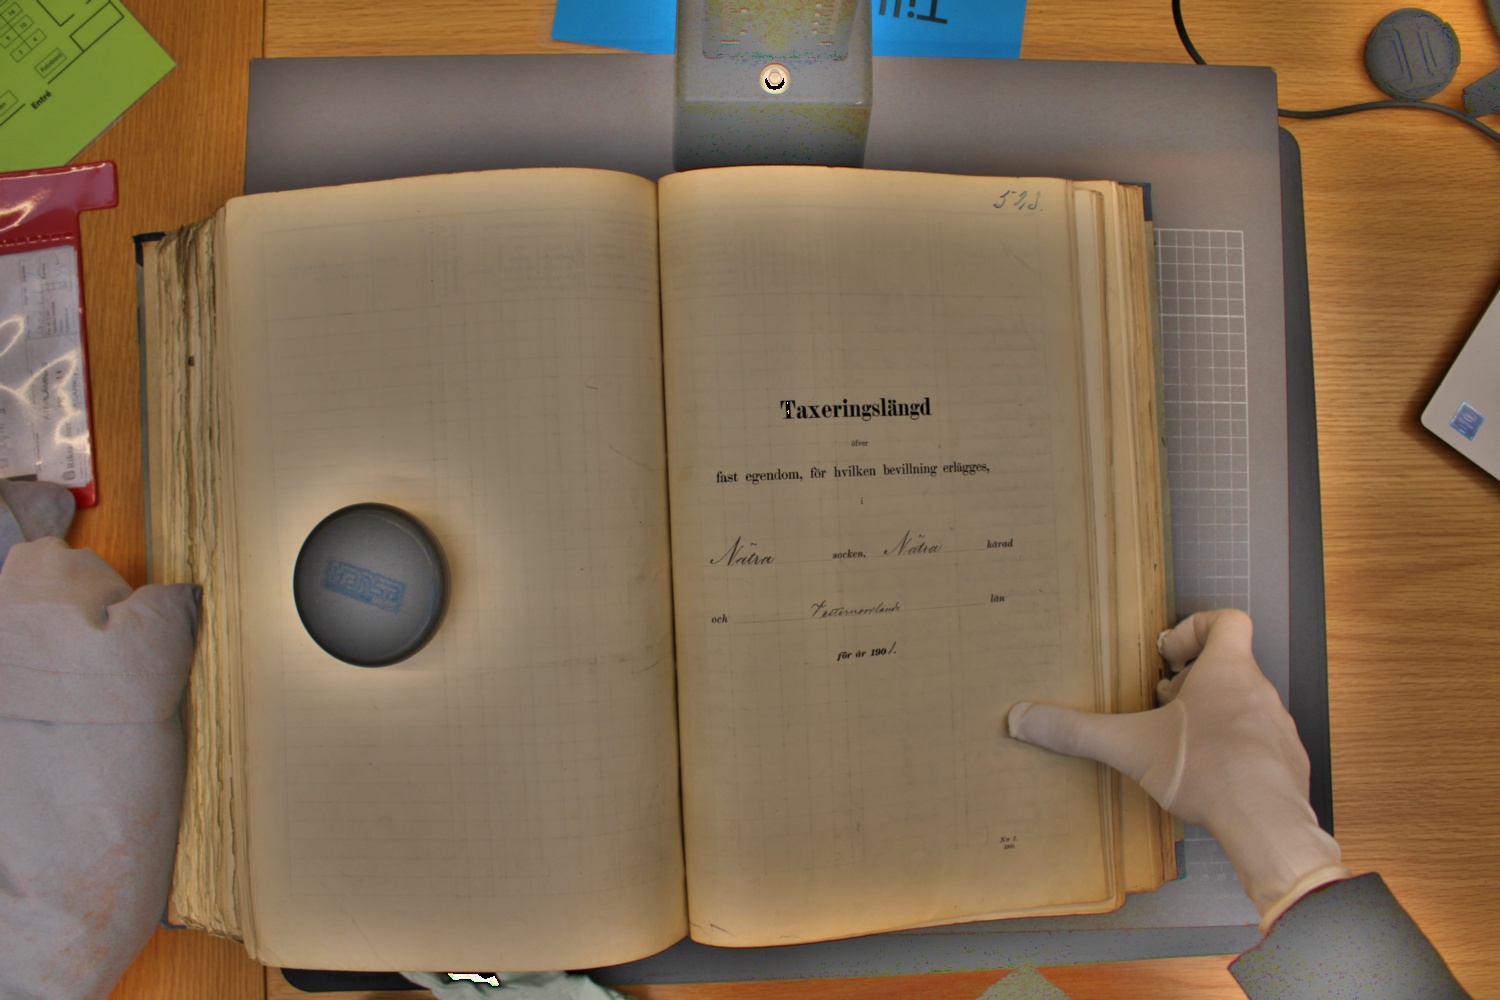 Till
Entré
523.
Taxeringslängd
öfver
fast egendom, för hvilken bevillning erlägges,
i
Nätra socken, Nätra härad
och Vesternorrlands län
för år 1901.